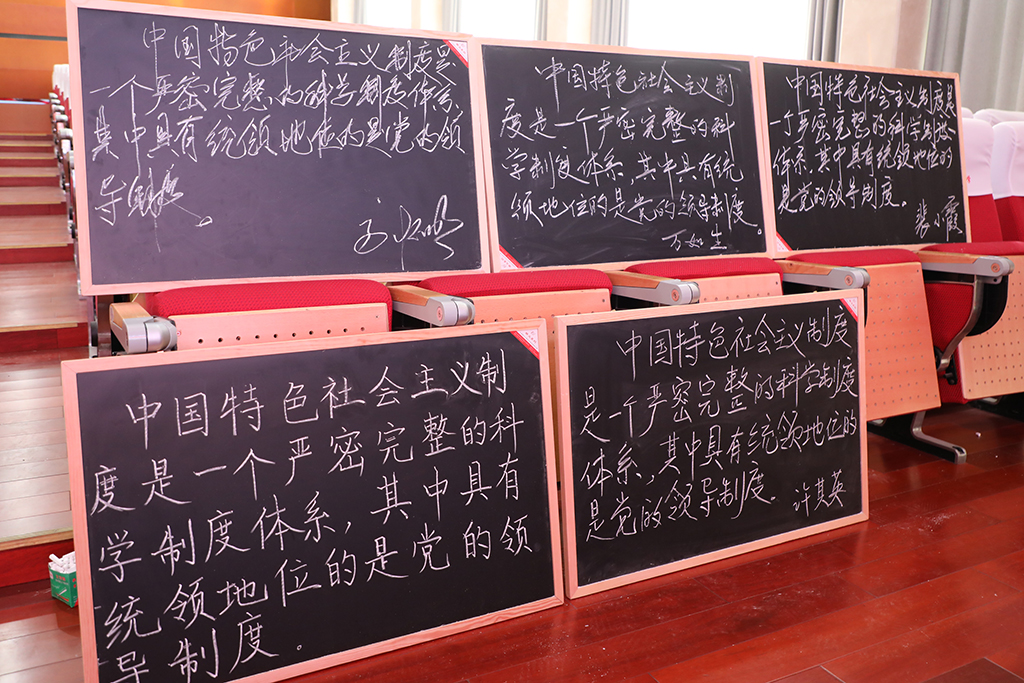 中国特色社会主义制度是
一个严密完整的科学制度体系，
其中具有统领地位的是党的领
导制度。
中国特色社会主义制
度是一个严密完整的科
学制度体系，其中具有统
领地位的是党的领导制度。
万如生
中国特色社会主义制度是
一个严密完整的科学制度
体系，其中具有统领地位的
是党的领导制度。
裴小霞
中国特色社会主义制
度是一个严密完整的科
学制度体系，其中具有
统领地位的是党的领
导制度。
中国特色社会主义制度
是一个严密完整的科学制度
体系，其中具有统领地位的
是党的领导制度。许其英